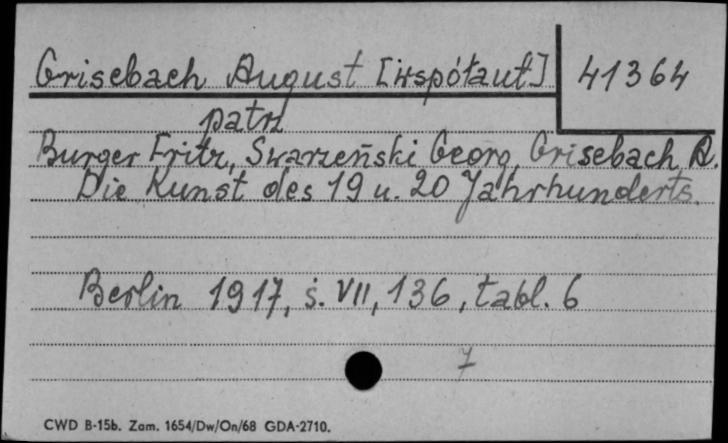 Grisebach August [współaut] 41364
patrz
Burger Fritz, Swarzeński Georg, Grisebach A.
Die Kunst des 19 u. 20 Jahrhunderts.
Berlin 1917, s. VII, 136, tabl. 6
7
CWD B-15b. Zam. 1654/Dw/On/68 GDA-2710.